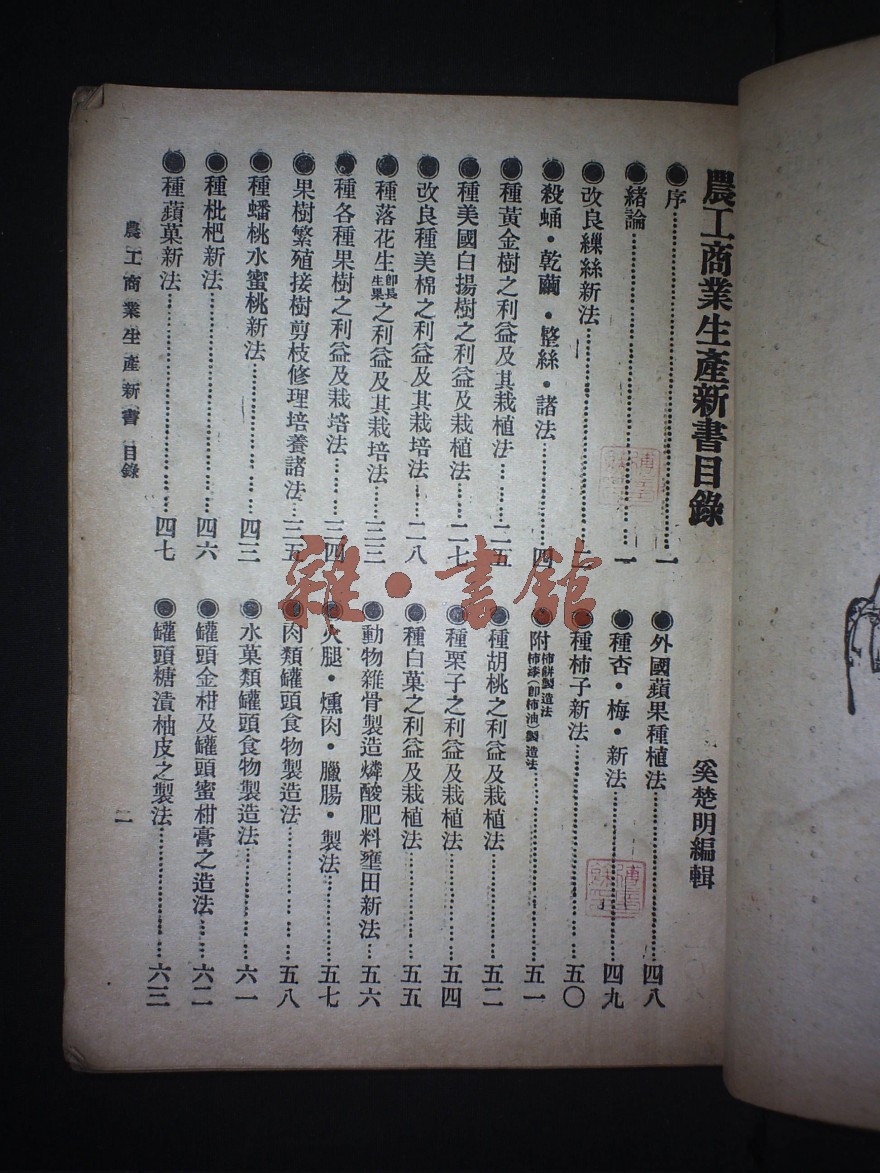 農工商業生產新書目錄
奚楚明編輯
●序…一
●緒論…一
●改良繅絲新法…二
●殺蛹·乾繭·整絲·諸法…四
●種黃金樹之利益及其栽植法…二五
●種美國白揚樹之利益及栽植法…二七
●改良種美棉之利益及其栽培法…二八
●種落花生卽長生果之利益及其栽培法…三三
●種各種果樹之利益及栽培法…三四
●果樹繁殖接樹剪枝修理培養諸法…三五
●種蟠桃水蜜桃新法…四三
●種枇杷新法…四六
●種蘋菓新法…四七
●外國蘋果種植法…四八
●種杏·梅·新法…四九
●種柿子新法…五〇
●附柿餅製造法柿漆(卽柿油)製造法…五一
●種胡桃之利益及栽植法…五二
●種栗子之利益及栽植法…五四
●種白菓之利益及栽植法…五五
●動物雜骨製造燐酸肥料壅田新法…五六
●火腿·燻肉·臘腸·製法…五七
●肉類罐頭食物製造法…五八
●水菓類罐頭食物製造法…六一
●罐頭金柑及罐頭蜜柑膏之造法…六二
●罐頭糖漬柚皮之製法…六三
農工商業生產新書 目錄
二
雜·書館